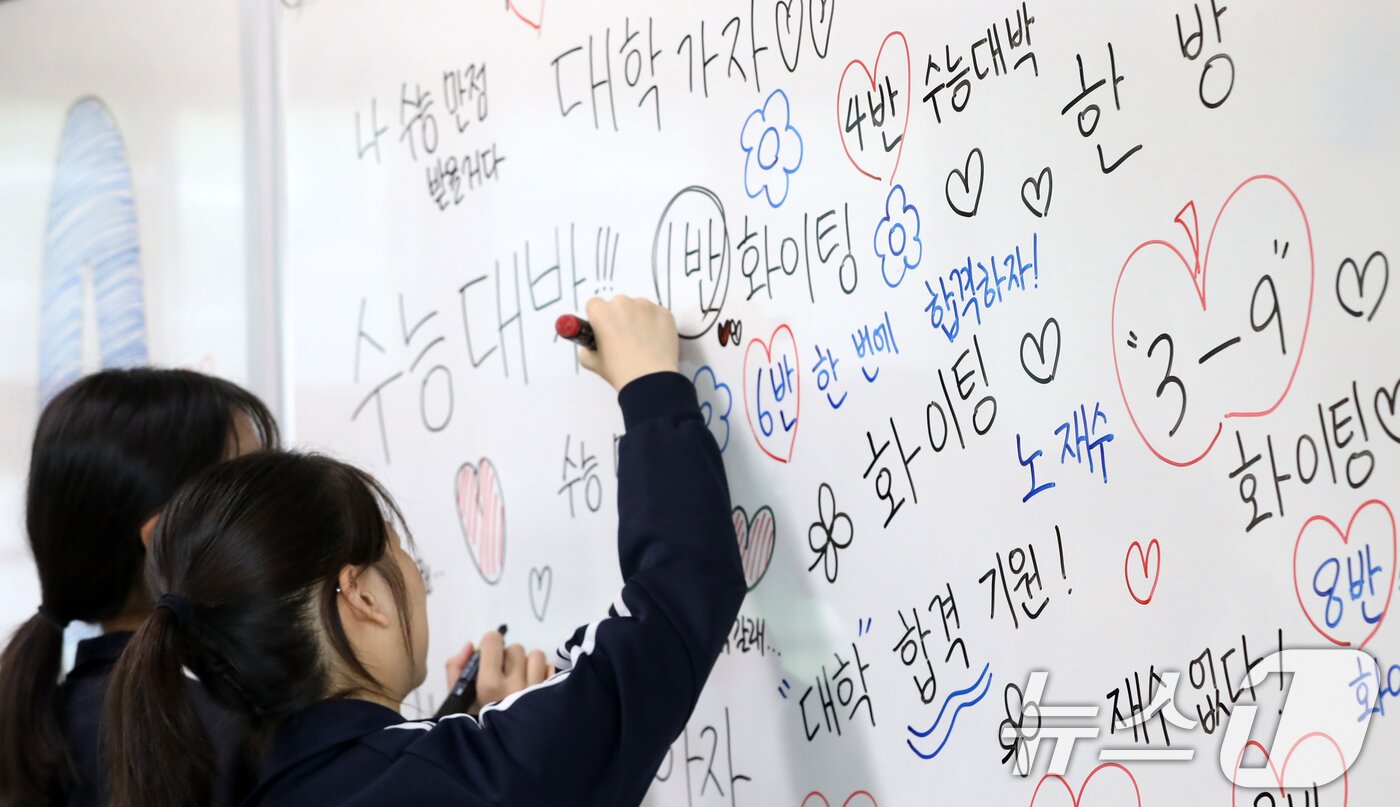 대학가자
나 수능 만점
받을거다
4반 수능대박
한 방
수능대박!!!
1반 화이팅
6반 한 번에 합격하자!
화이팅
노 재수
"3-9"
화이팅
8반
수능
"대학" 합격 기원!
재수 없다!
갈래...
뉴스1